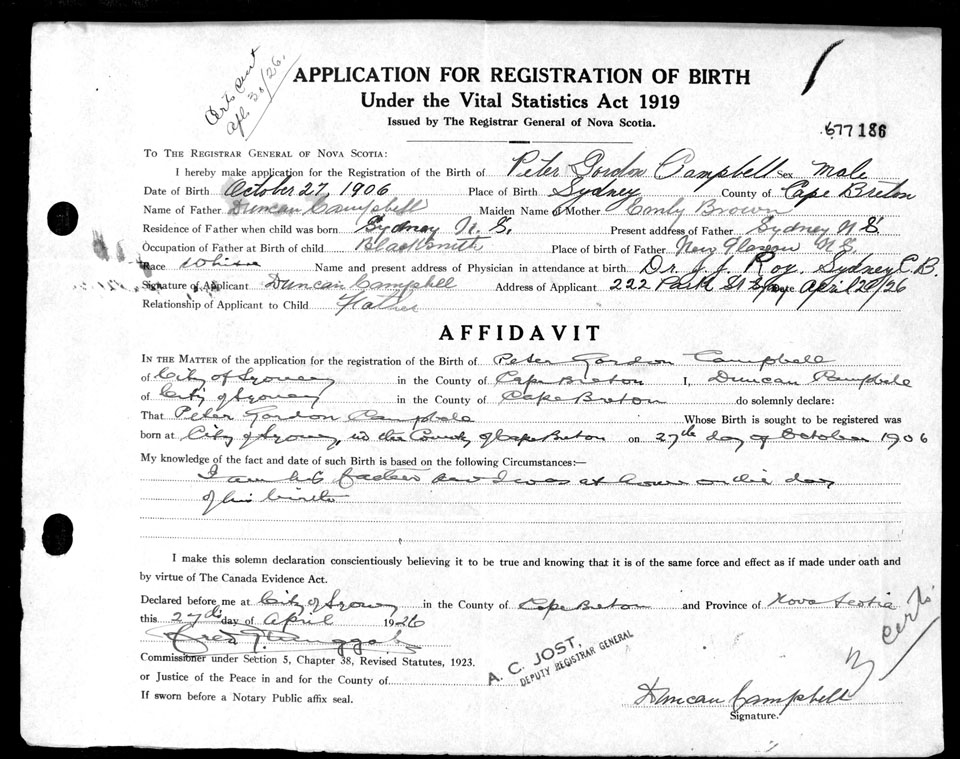 Certs sent
Apl 30/26.
APPLICATION FOR REGISTRATION OF BIRTH
Under the Vital Statistics Act 1919
Issued by The Registrar General of Nova Scotia.
677186
To The Registrar General of Nova Scotia:
I hereby make application for the Registration of the Birth of Peter Gordon Campbell Sex Male
Date of Birth October 27, 1906 Place of Birth Sydney County of Cape Breton
Name of Father Duncan Campbell Maiden Name of Mother Emily Brown
Residence of Father when child was born Sydney N. S. Present address of Father Sydney N S
Occupation of Father at Birth of child Blacksmith Place of birth of Father New Glasgow N.S.
Race White Name and present address of Physician in attendance at birth Dr. J. J. Roy. Sydney C. B.
Signature of Applicant Duncan Campbell Address of Applicant 222 Park St Date April 26/26
Relationship of Applicant to Child Father
AFFIDAVIT
In the Matter of the application for the registration of the Birth of Peter Gordon Campbell
of City of Sydney in the County of Cape Breton I, Duncan Campbell
of City of Sydney in the County of Cape Breton do solemnly declare:
That Peter Gordon Campbell Whose Birth is sought to be registered was
born at City of Sydney, in the County of Cape Breton on 27th day of October 1906
My knowledge of the fact and date of such Birth is based on the following Circumstances:—
I am his father and I was at home on the day
of his birth
I make this solemn declaration conscientiously believing it to be true and knowing that it is of the same force and effect as if made under oath and
by virtue of The Canada Evidence Act.
Declared before me at City of Sydney in the County of Cape Breton and Province of Nova Scotia
this 27th day of April 1926
Commissioner under Section 5, Chapter 38, Revised Statutes, 1923.
or Justice of the Peace in and for the County of
If sworn before a Notary Public affix seal.
A. C. JOST,
DEPUTY REGISTRAR GENERAL
3 certs
Duncan Campbell
Signature.